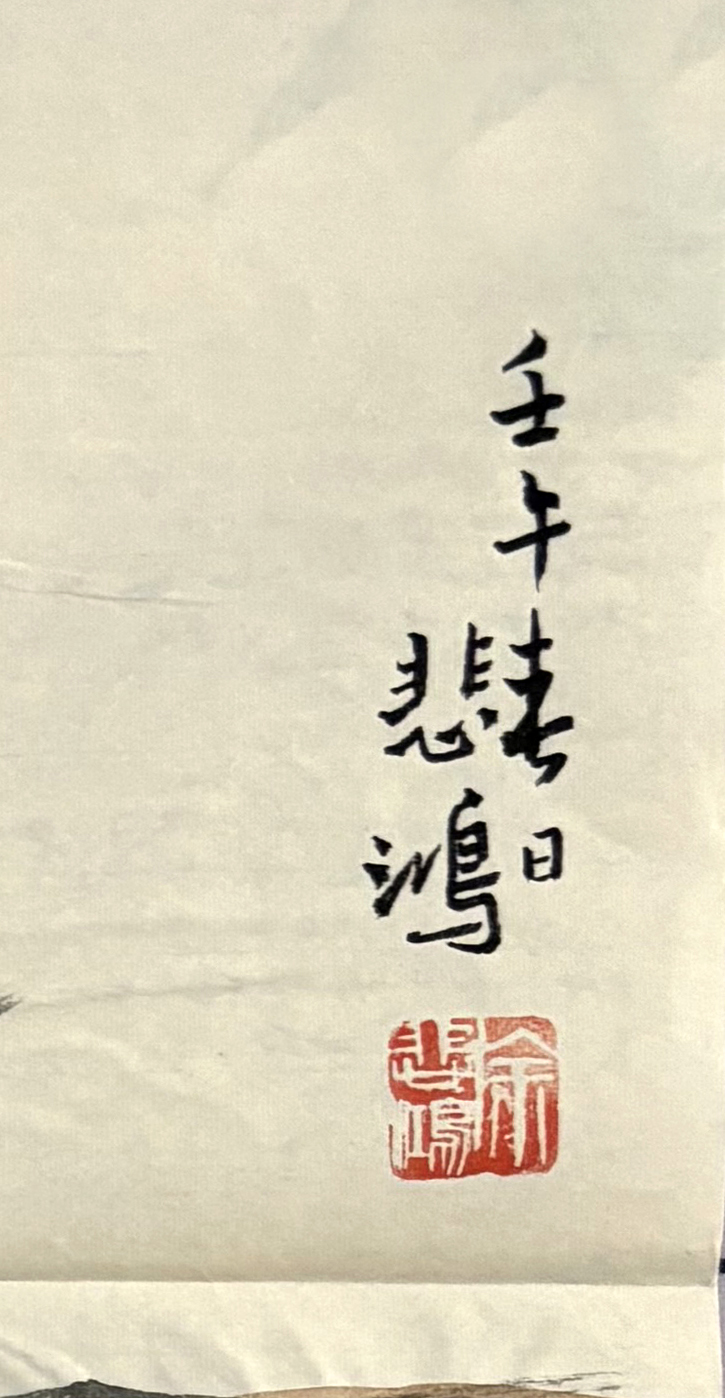 壬午春日
悲鴻
徐悲鴻